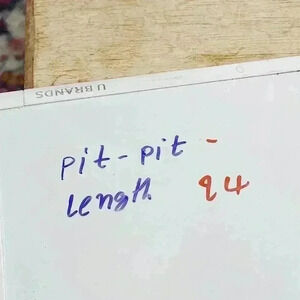 U BRANDS
pit - pit -
Length 94